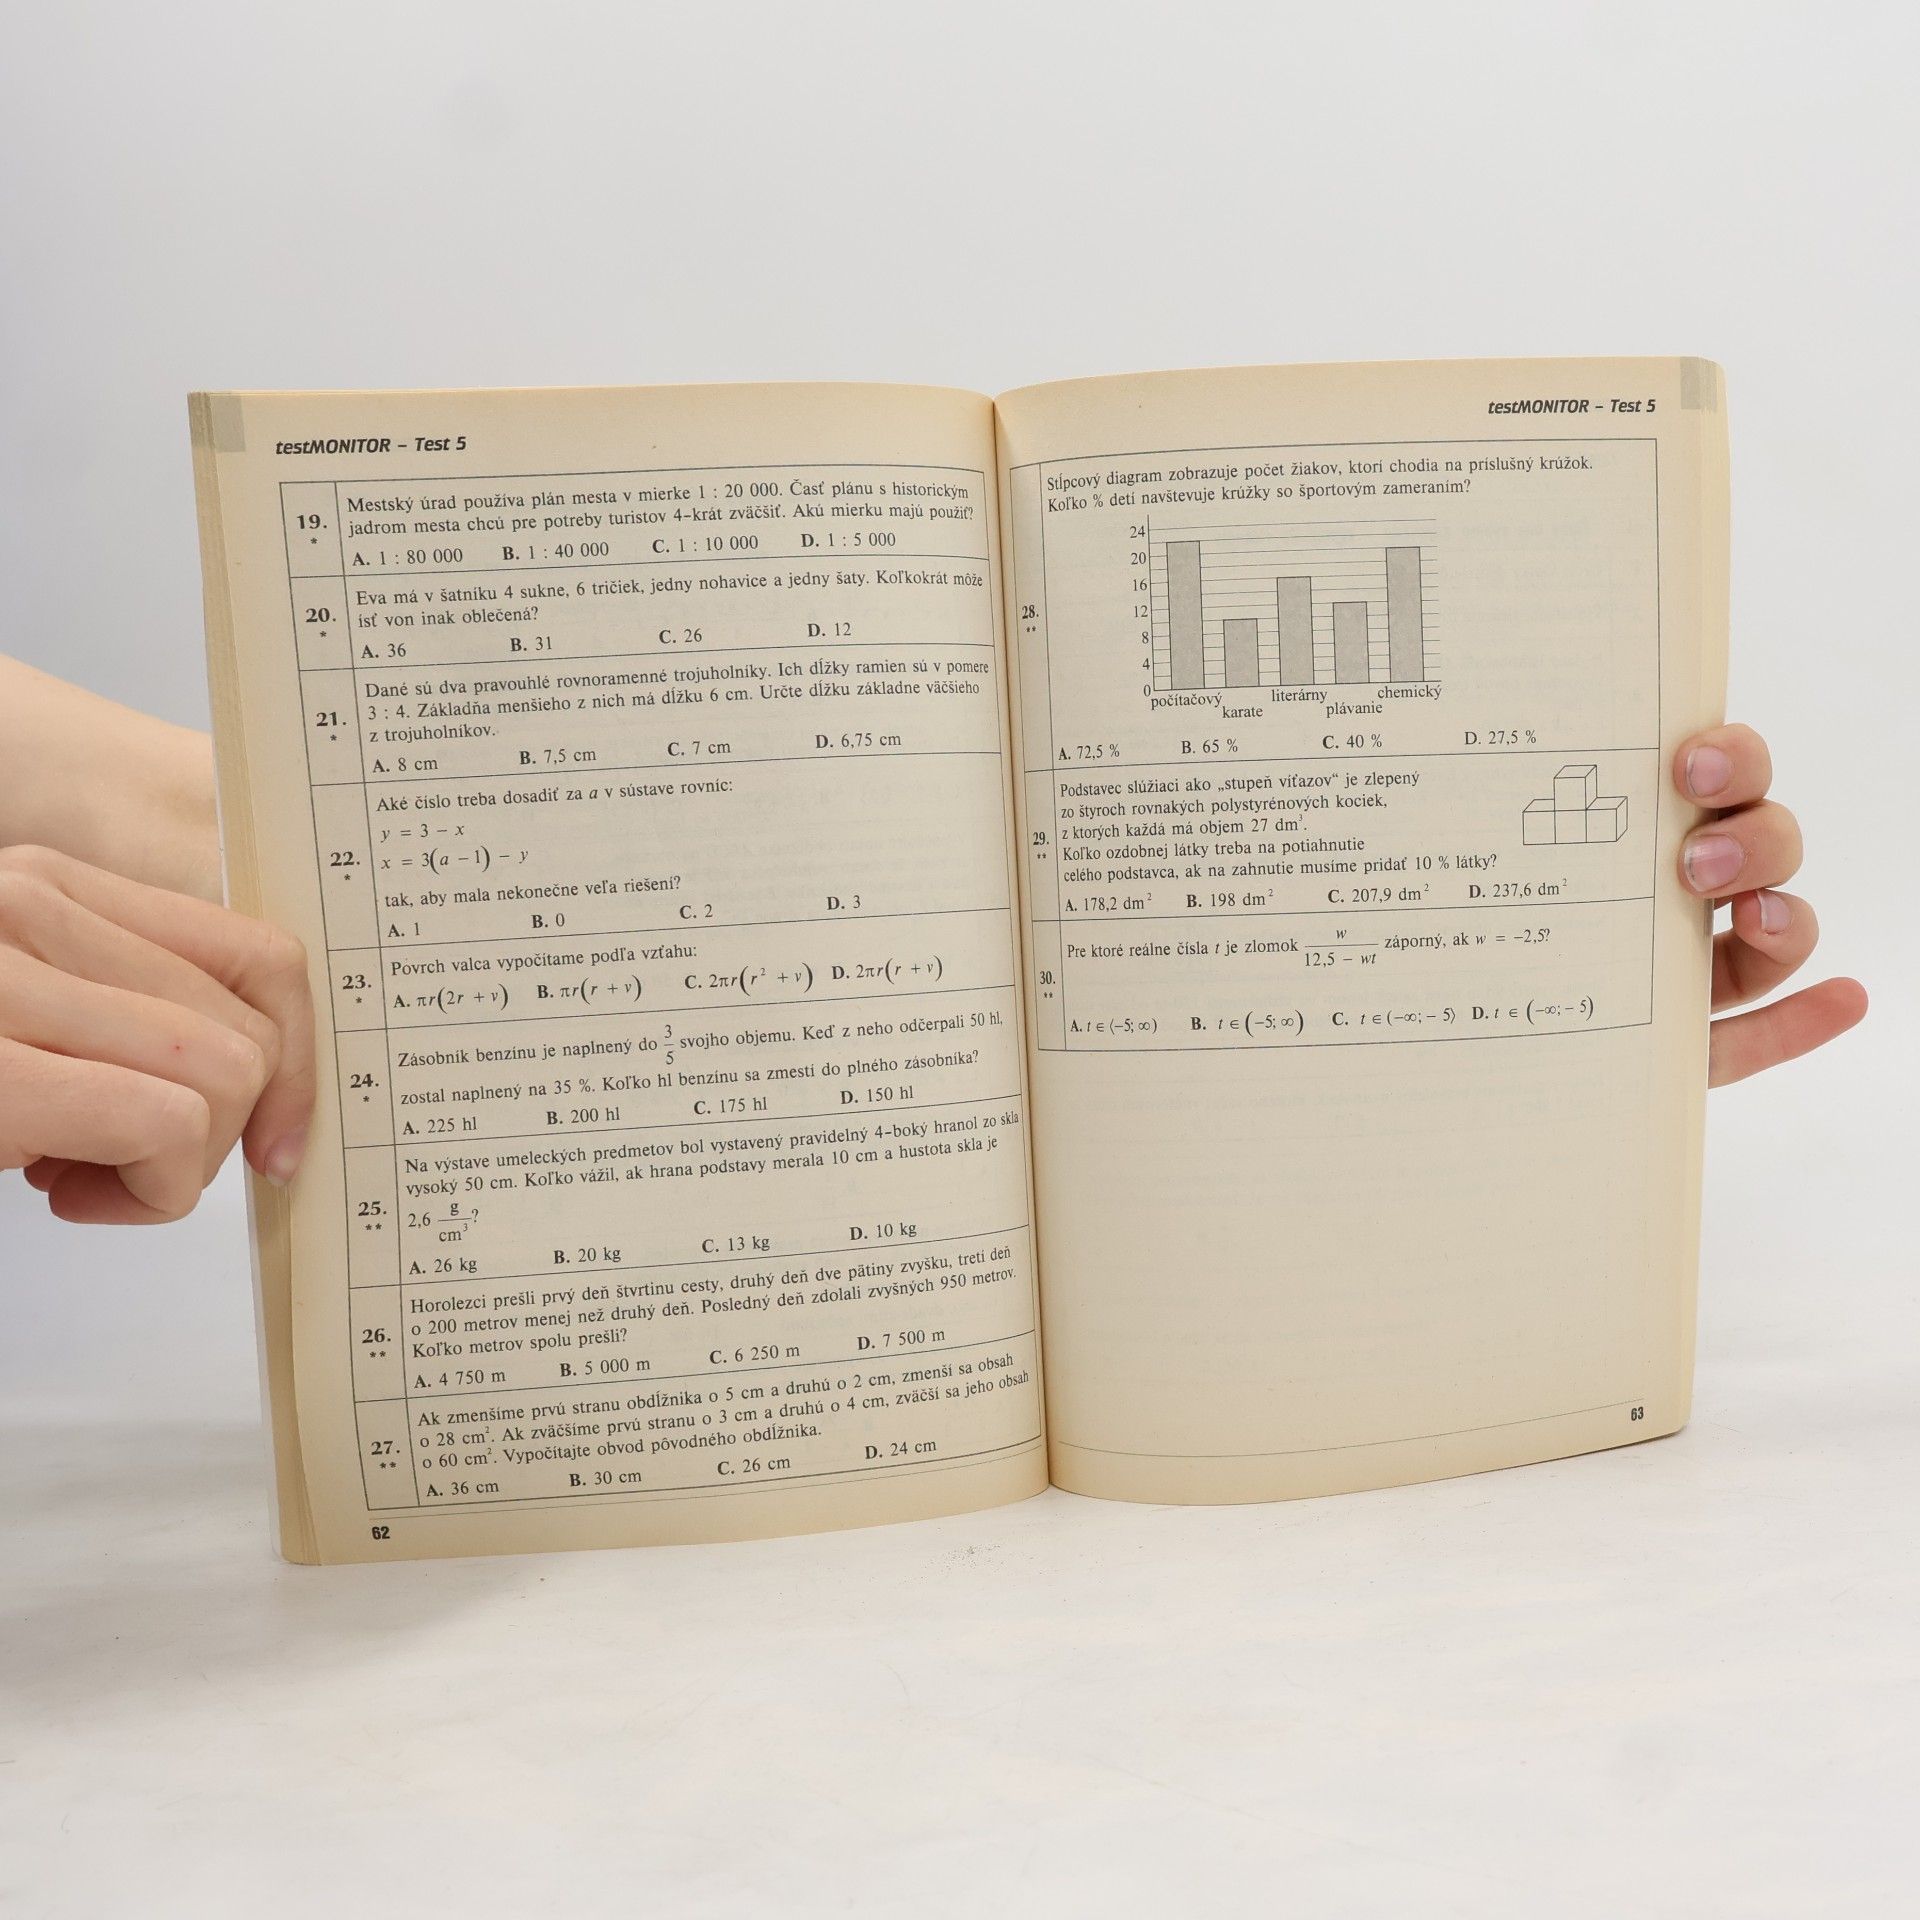 testMONITOR – Test 5
19.
*
Mestský úrad používa plán mesta v mierke 1 : 20 000. Časť plánu s historickým
jadrom mesta chcú pre potreby turistov 4-krát zväčšiť. Akú mierku majú použiť?
A. 1 : 80 000 B. 1 : 40 000 C. 1 : 10 000 D. 1 : 5 000
20.
*
Eva má v šatníku 4 sukne, 6 tričiek, jedny nohavice a jedny šaty. Koľkokrát môže
ísť von inak oblečená?
A. 36 B. 31 C. 26 D. 12
21.
*
Dané sú dva pravouhlé rovnoramenné trojuholníky. Ich dĺžky ramien sú v pomere
3 : 4. Základňa menšieho z nich má dĺžku 6 cm. Určte dĺžku základne väčšieho
z trojuholníkov.
A. 8 cm B. 7,5 cm C. 7 cm D. 6,75 cm
22.
*
Aké číslo treba dosadiť za a v sústave rovníc:
y = 3 – x
x = 3(a – 1) – y
tak, aby mala nekonečne veľa riešení?
A. 1 B. 0 C. 2 D. 3
23.
*
Povrch valca vypočítame podľa vzťahu:
A. πr(2r + v) B. πr(r + v) C. 2πr(r² + v) D. 2πr(r + v)
24.
*
Zásobník benzínu je naplnený do 3/5 svojho objemu. Keď z neho odčerpali 50 hl,
zostal naplnený na 35 %. Koľko hl benzínu sa zmestí do plného zásobníka?
A. 225 hl B. 200 hl C. 175 hl D. 150 hl
25.
**
Na výstave umeleckých predmetov bol vystavený pravidelný 4-boký hranol zo skla
vysoký 50 cm. Koľko vážil, ak hrana podstavy merala 10 cm a hustota skla je
2,6 g/cm³?
A. 26 kg B. 20 kg C. 13 kg D. 10 kg
26.
**
Horolezci prešli prvý deň štvrtinu cesty, druhý deň dve pätiny zvyšku, tretí deň
o 200 metrov menej než druhý deň. Posledný deň zdolali zvyšných 950 metrov.
Koľko metrov spolu prešli?
A. 4 750 m B. 5 000 m C. 6 250 m D. 7 500 m
27.
**
Ak zmenšíme prvú stranu obdĺžnika o 5 cm a druhú o 2 cm, zmenší sa obsah
o 28 cm². Ak zväčšíme prvú stranu o 3 cm a druhú o 4 cm, zväčší sa jeho obsah
o 60 cm². Vypočítajte obvod pôvodného obdĺžnika.
A. 36 cm B. 30 cm C. 26 cm D. 24 cm
62
testMONITOR – Test 5
28.
**
Stĺpcový diagram zobrazuje počet žiakov, ktorí chodia na príslušný krúžok.
Koľko % detí navštevuje krúžky so športovým zameraním?
24
20
16
12
8
4
0
počítačový literárny chemický
karate plávanie
A. 72,5 % B. 65 % C. 40 % D. 27,5 %
29.
**
Podstavec slúžiaci ako „stupeň víťazov“ je zlepený
zo štyroch rovnakých polystyrénových kociek,
z ktorých každá má objem 27 dm³.
Koľko ozdobnej látky treba na potiahnutie
celého podstavca, ak na zahnutie musíme pridať 10 % látky?
A. 178,2 dm² B. 198 dm² C. 207,9 dm² D. 237,6 dm²
30.
**
Pre ktoré reálne čísla t je zlomok w/(12,5 – wt) záporný, ak w = –2,5?
A. t ∈ ⟨–5; ∞) B. t ∈ (–5; ∞) C. t ∈ (–∞; – 5⟩ D. t ∈ (–∞; – 5)
63